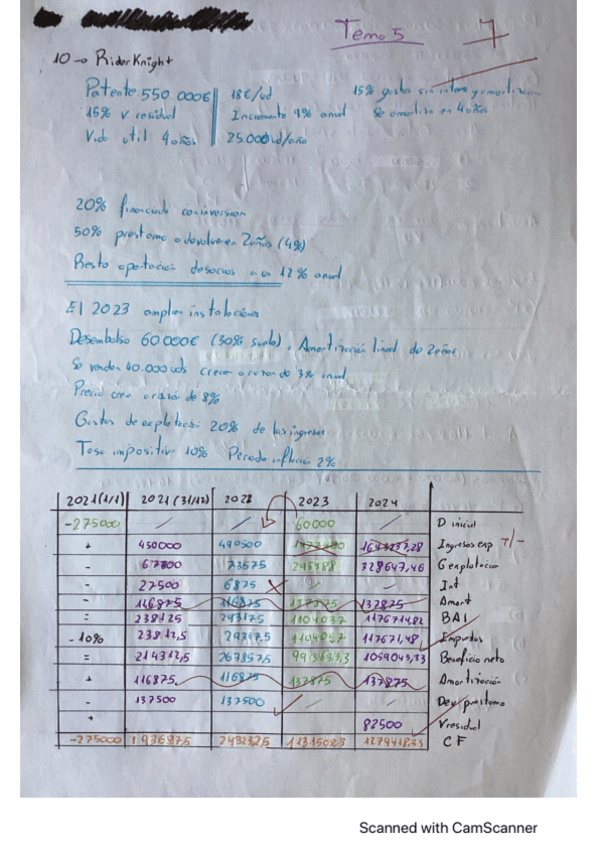 Tema 5 7
10 → Rider Knight
Patente 550.000€ 18€/ud 15% gastos sin inter y amortizacion
15% v residual Incremento 9% anual Se amortiza en 4 años
Vida util 4 años 25.000 ud/año
20% financiado con inversion
50% prestamo a devolver en 2 años (4%)
Resto aportación de socios a un 12% anual
El 2023 amplian instalaciones
Desembolso 60000€ (30% suelo). Amortización lineal de 2 años
Se venden 40.000 uds crecen a razon de 3% anual
Precio crece a razon de 8%
Gastos de explotación 20% de los ingresos
Tasa impositiva 10% Periodo inflación 2%
2021(1/1) 2021(31/12) 2022 2023 2024
-275000 / / 60000 / D inicial
+ 450000 490500 1643237,28 Ingresos exp +/-
- 67500 73575 328647,46 G explotacion
- 27500 6875 / / Int
- 116875 116875 137875 137875 Amort
= 238125 293175 1104037 1176714,82 BAI
- 10% 23812,5 29317,5 110403,7 117671,48 Impuestos
= 214312,5 263857,5 993633,3 1059043,33 Beneficio neto
+ 116875 116875 137875 137875 Amortización
- 137500 137500 / / Dev prestamo
+ 82500 V residual
-275000 193687,5 243232,5 1131508,3 1279418,33 CF
Scanned with CamScanner